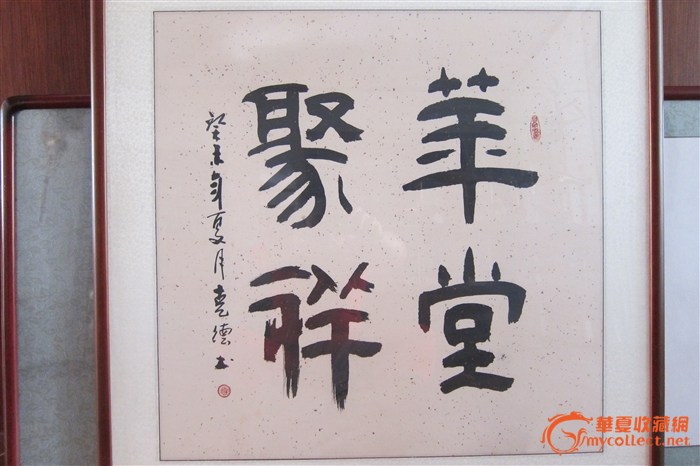 華堂
聚祥
癸未年夏月克德书
華夏收藏網
mycollect.net